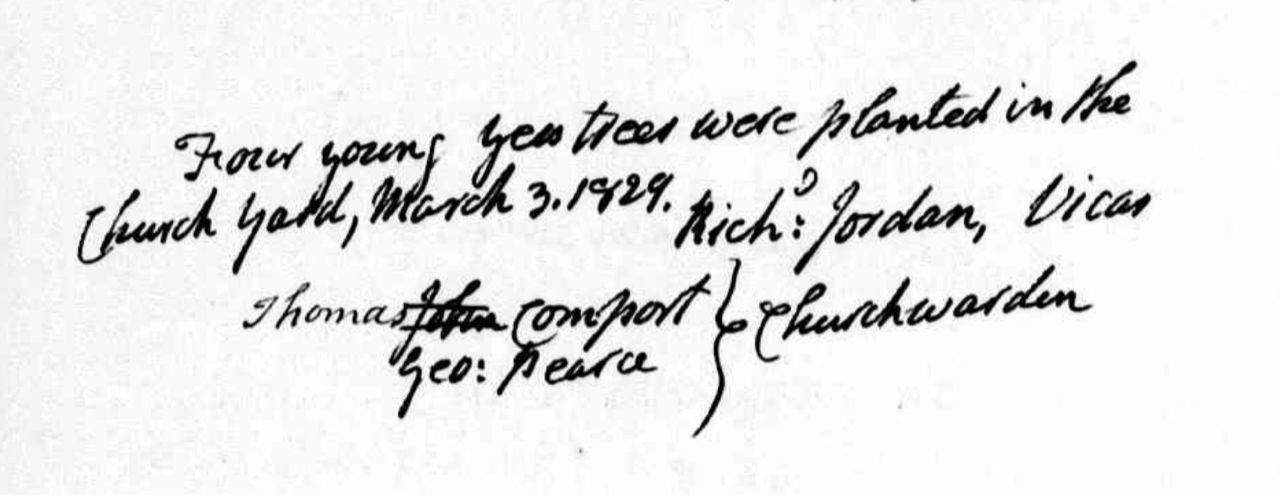 Four young yew trees were planted in the
Church yard, March 3. 1829. Rich:d Jordan, Vicar
Thomas John Comport } Churchwarden
Geo: Pearce